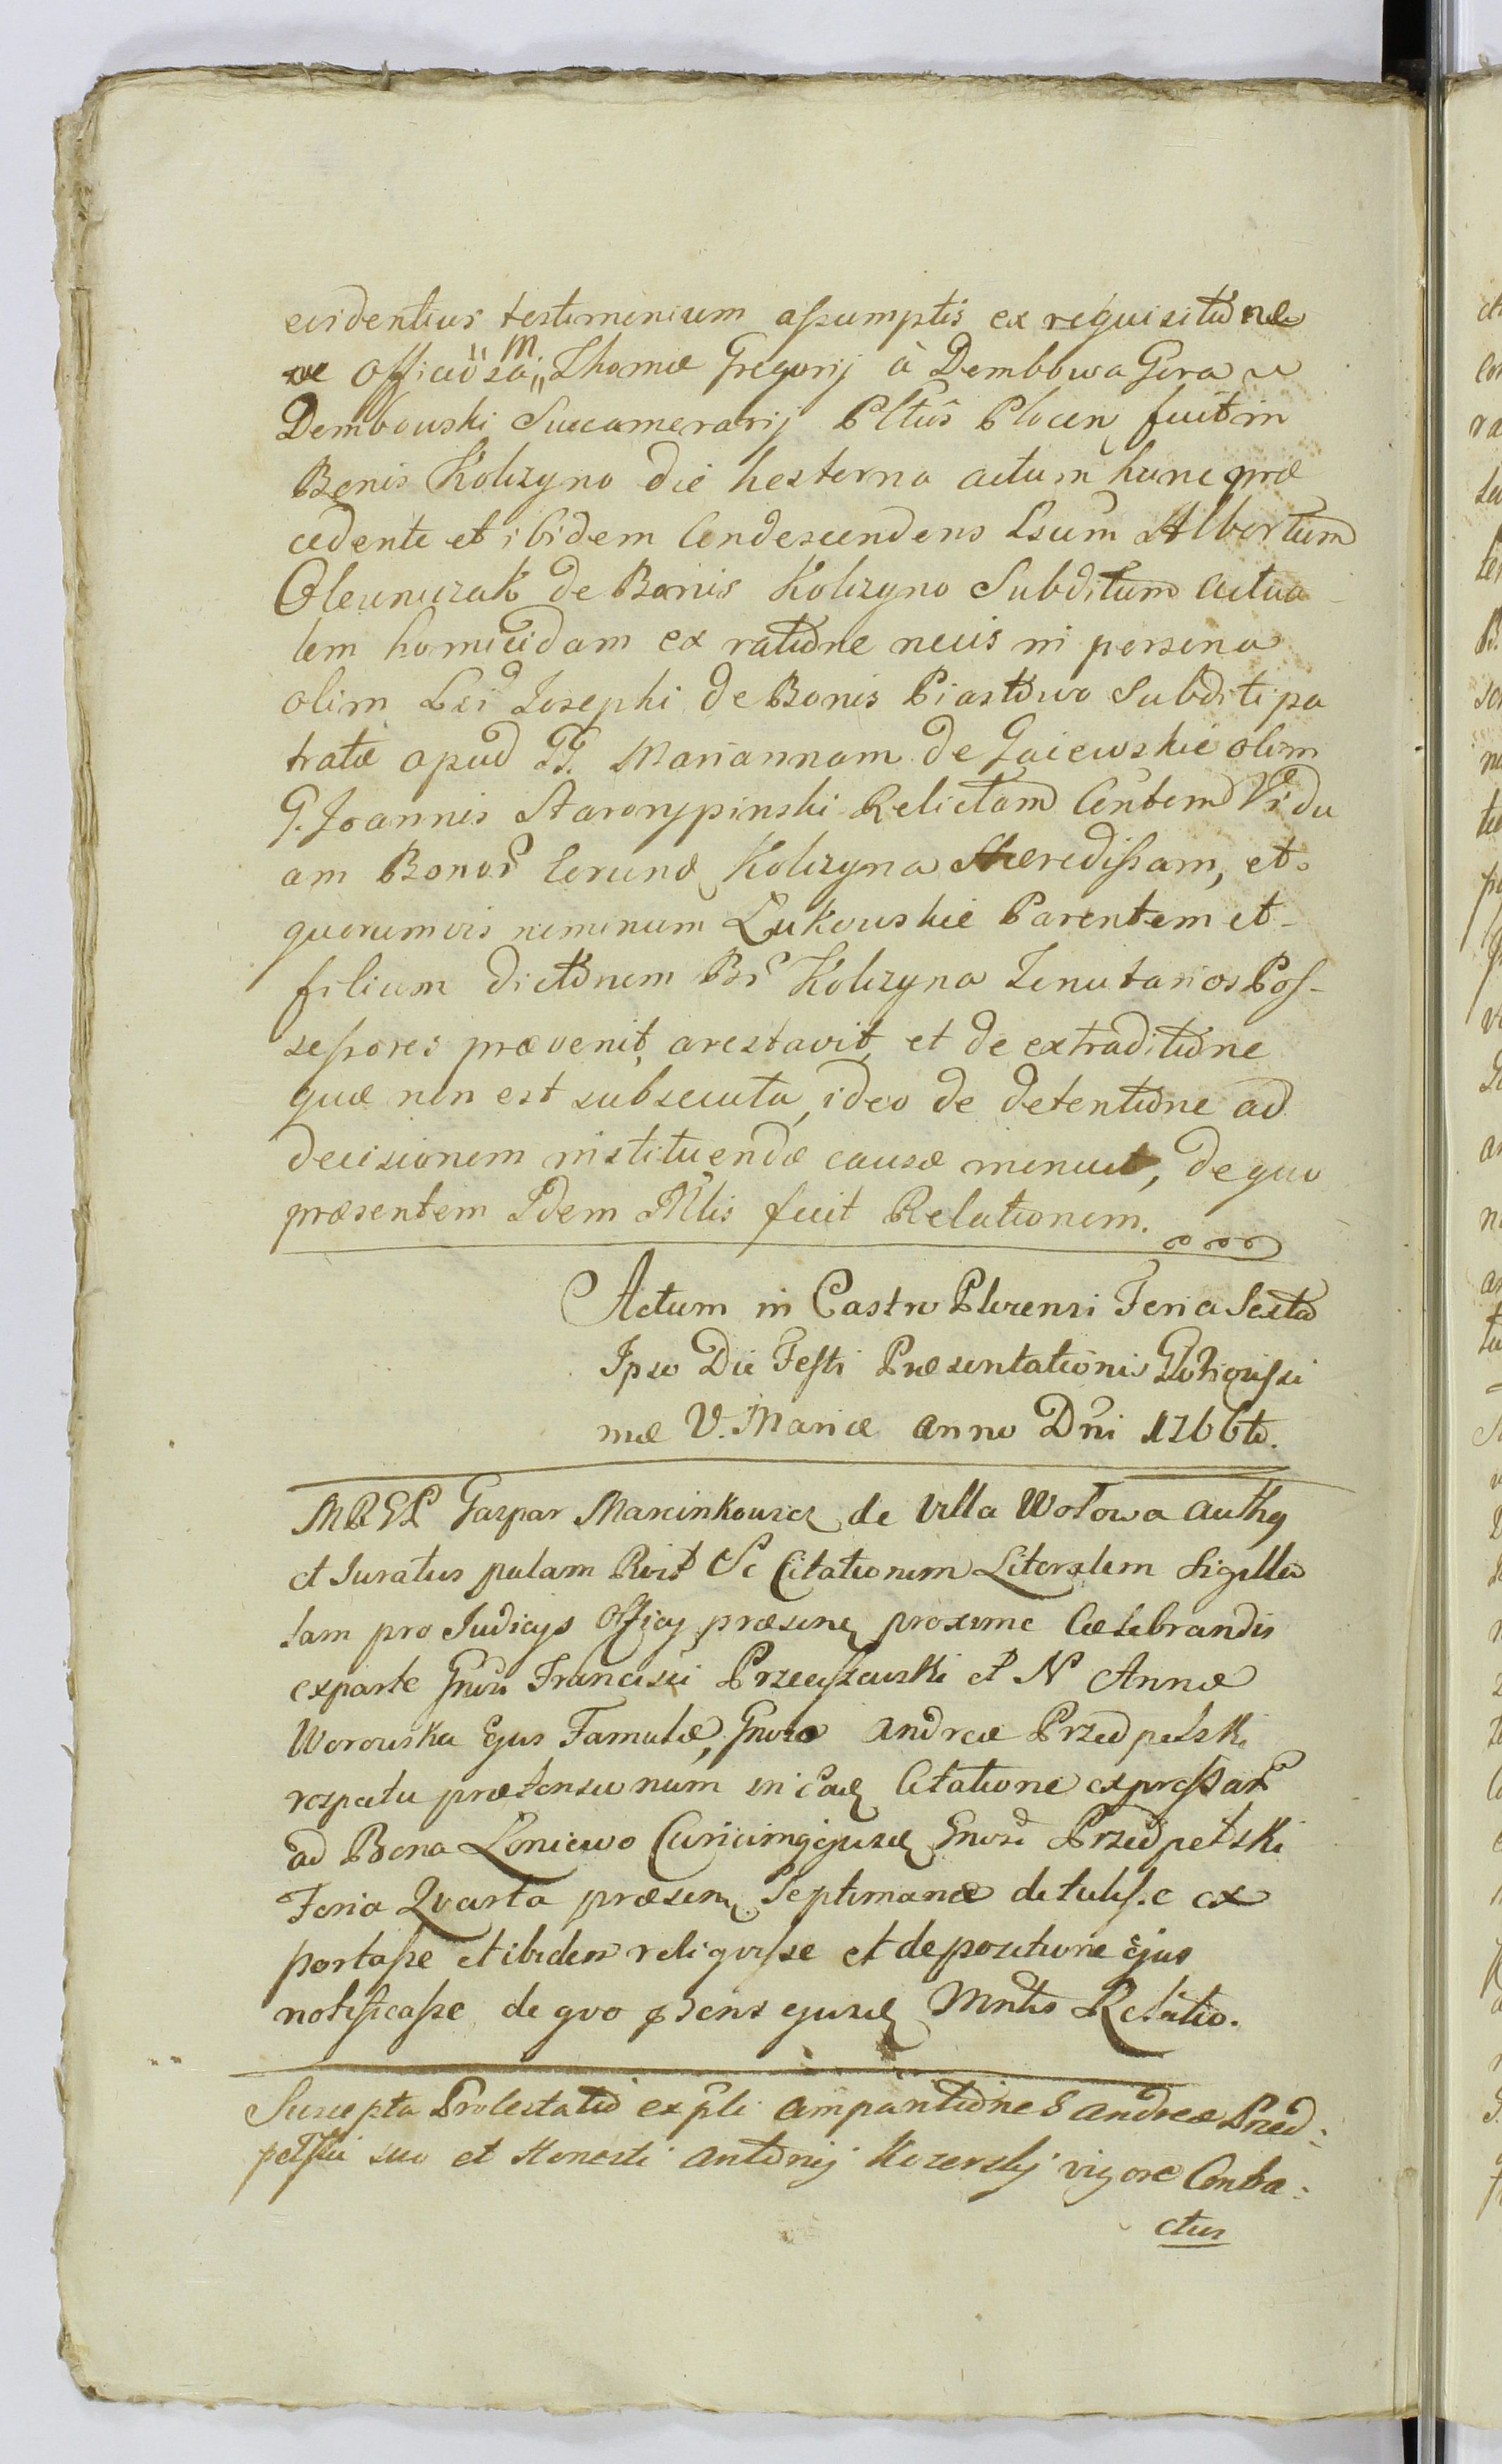 evidentius testimonium assumptis ex requisitione
ac officiosa M. Thomæ Gregorij à Dembowa Gora
Dembowski Succamerarij Pltûs Plocen fuit in
Bonis Kolczyno die hesterna actum hunc præ
cedente et ibidem Condescendens Lsum Albertum
de Bonis Kolczyno Subditum actua
lem homicidam ex ratione necis in persona
olim Lsi Josephi de Bonis Piastowo Subditi pa
tratæ apud GG. Mariannam de Gaiewskie olim
G. Joannis Starorypinski Relictam Contem Vidu
am Bonor eorund Kolczyna Hæredissam, et
quorumvis nominum Łukowskie Parentem et
filium dictonem Br Kolczyna Tenutarios Pos-
sessores prævenit, arestavit, et de extraditione
quæ non est subsecuta, ideo de detentione ad
decisionem instituendæ causæ monuit, de quo
præsentem Idem Mlis fecit Relationem.
Actum in Castro Plocensi Feria Sexta
Ipso Die Festi Præsentationis Gloriosissi
mæ V. Mariæ anno Dni 1766to.
MREL Gaspar Marcinkowicz de Villa Wołowa auth
et Juratus palam Rvit Se Citationem Literalem Sigilla
tam pro Judicijs Officij præsen proxime Celebrandis
exparte Gnosi Francisci Przeciszewski et N Annæ
Worowska Ejus Famulæ, Gnoso Andreæ Przedpełski
respectu prætensionum in ead Citatione expressar
ad Bona Łoniewo Curiamq ejusd Gnosi Przedpełski
Feria Quarta præsen Septimanæ detulisse ex
portasse et ibidem reliquisse et depositione ejus
notificasse de quo psens ejusd Mntis Relatio.
Suscepta Protestatio ex pli Andreæ Przed:
pełski suo et Honesti Antonij Kozerskij vigore Contra:
ctus